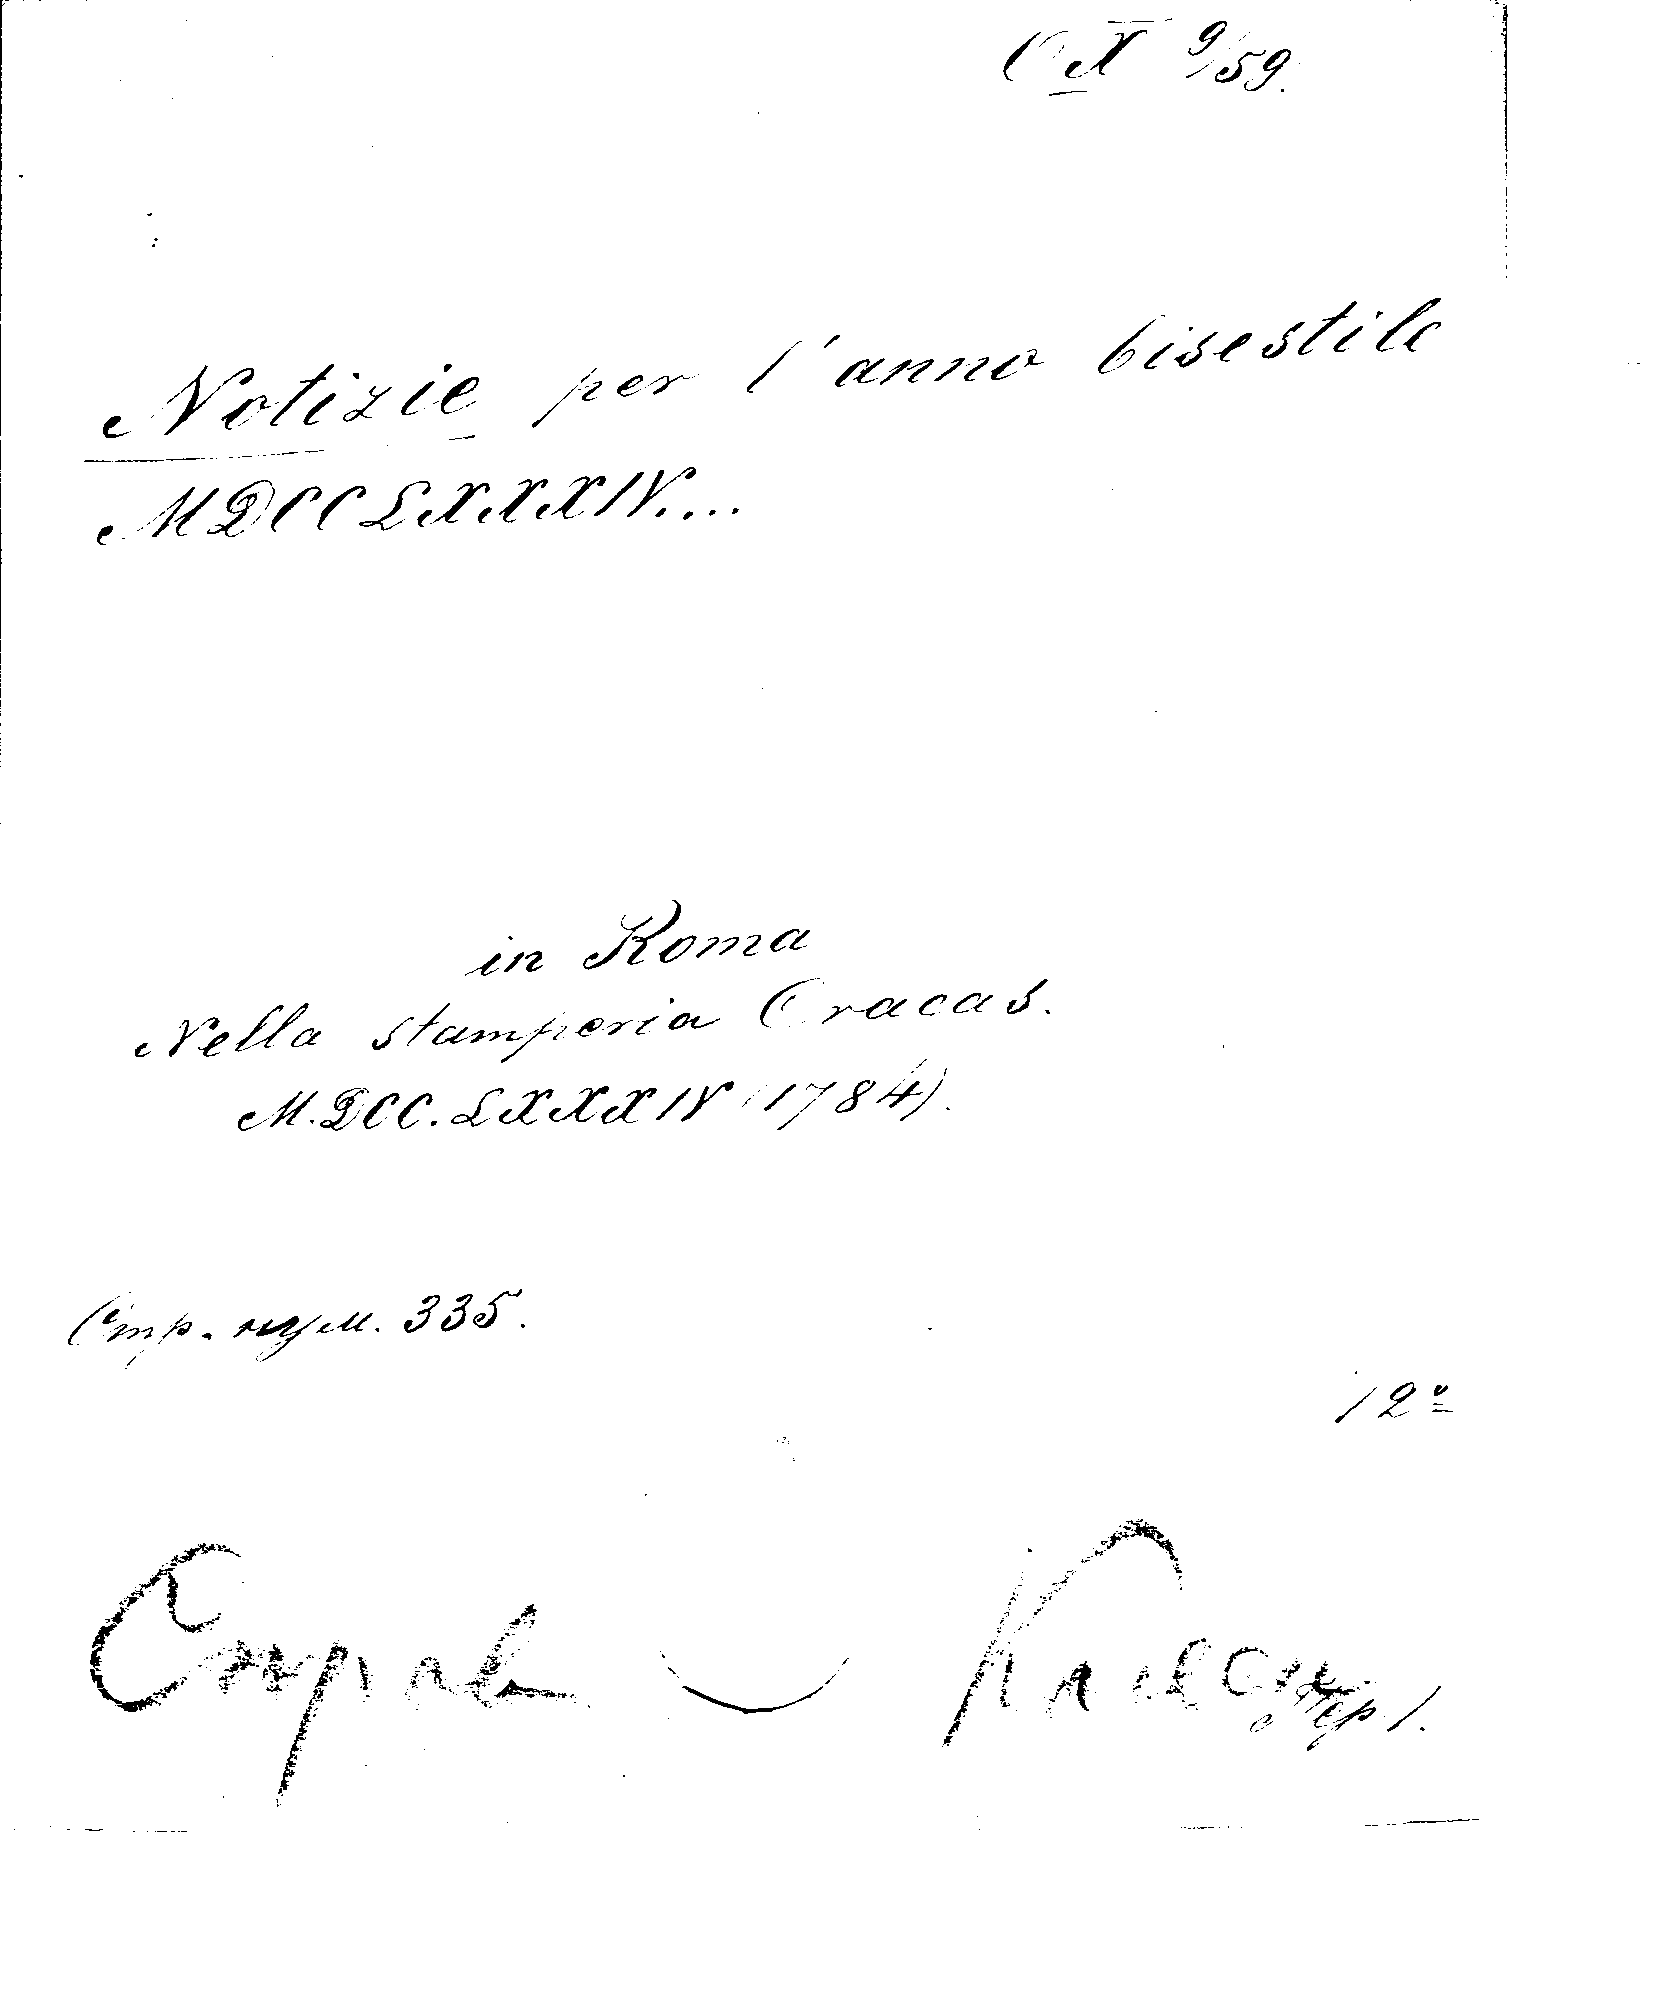 C X 9/59.
Notizie per l'anno bisestile
MDCCLXXXIV....
in Roma
Nella stamperia Cracas.
M.DCC.LXXXIV (1784).
Стр. нум. 335.
12º
Справ
1.